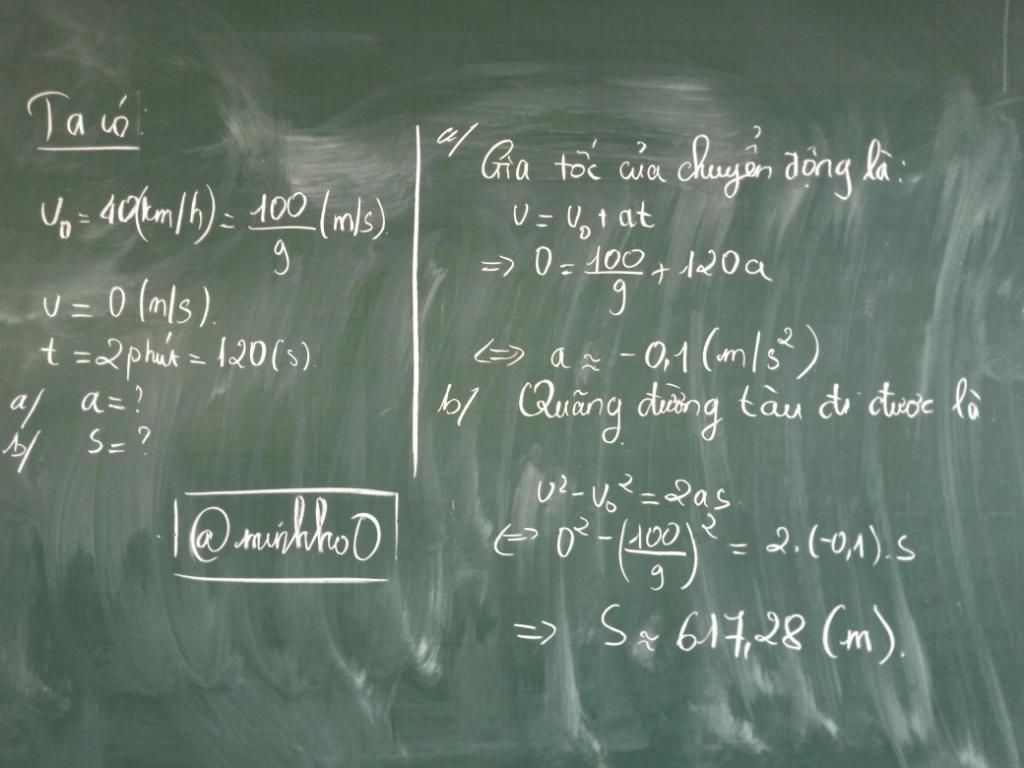 Ta có:
v₀ = 40(km/h) = 100/9 (m/s).
v = 0 (m/s).
t = 2 phút = 120(s).
a/ a = ?
b/ s = ?
@minhho0
a/ Gia tốc của chuyển động là:
v = v₀ + at
=> 0 = 100/9 + 120a
<=> a ≈ -0,1 (m/s²)
b/ Quãng đường tàu đi được là
v² - v₀² = 2as
<=> 0² - (100/9)² = 2.(-0,1).s
=> S ≈ 617,28 (m).